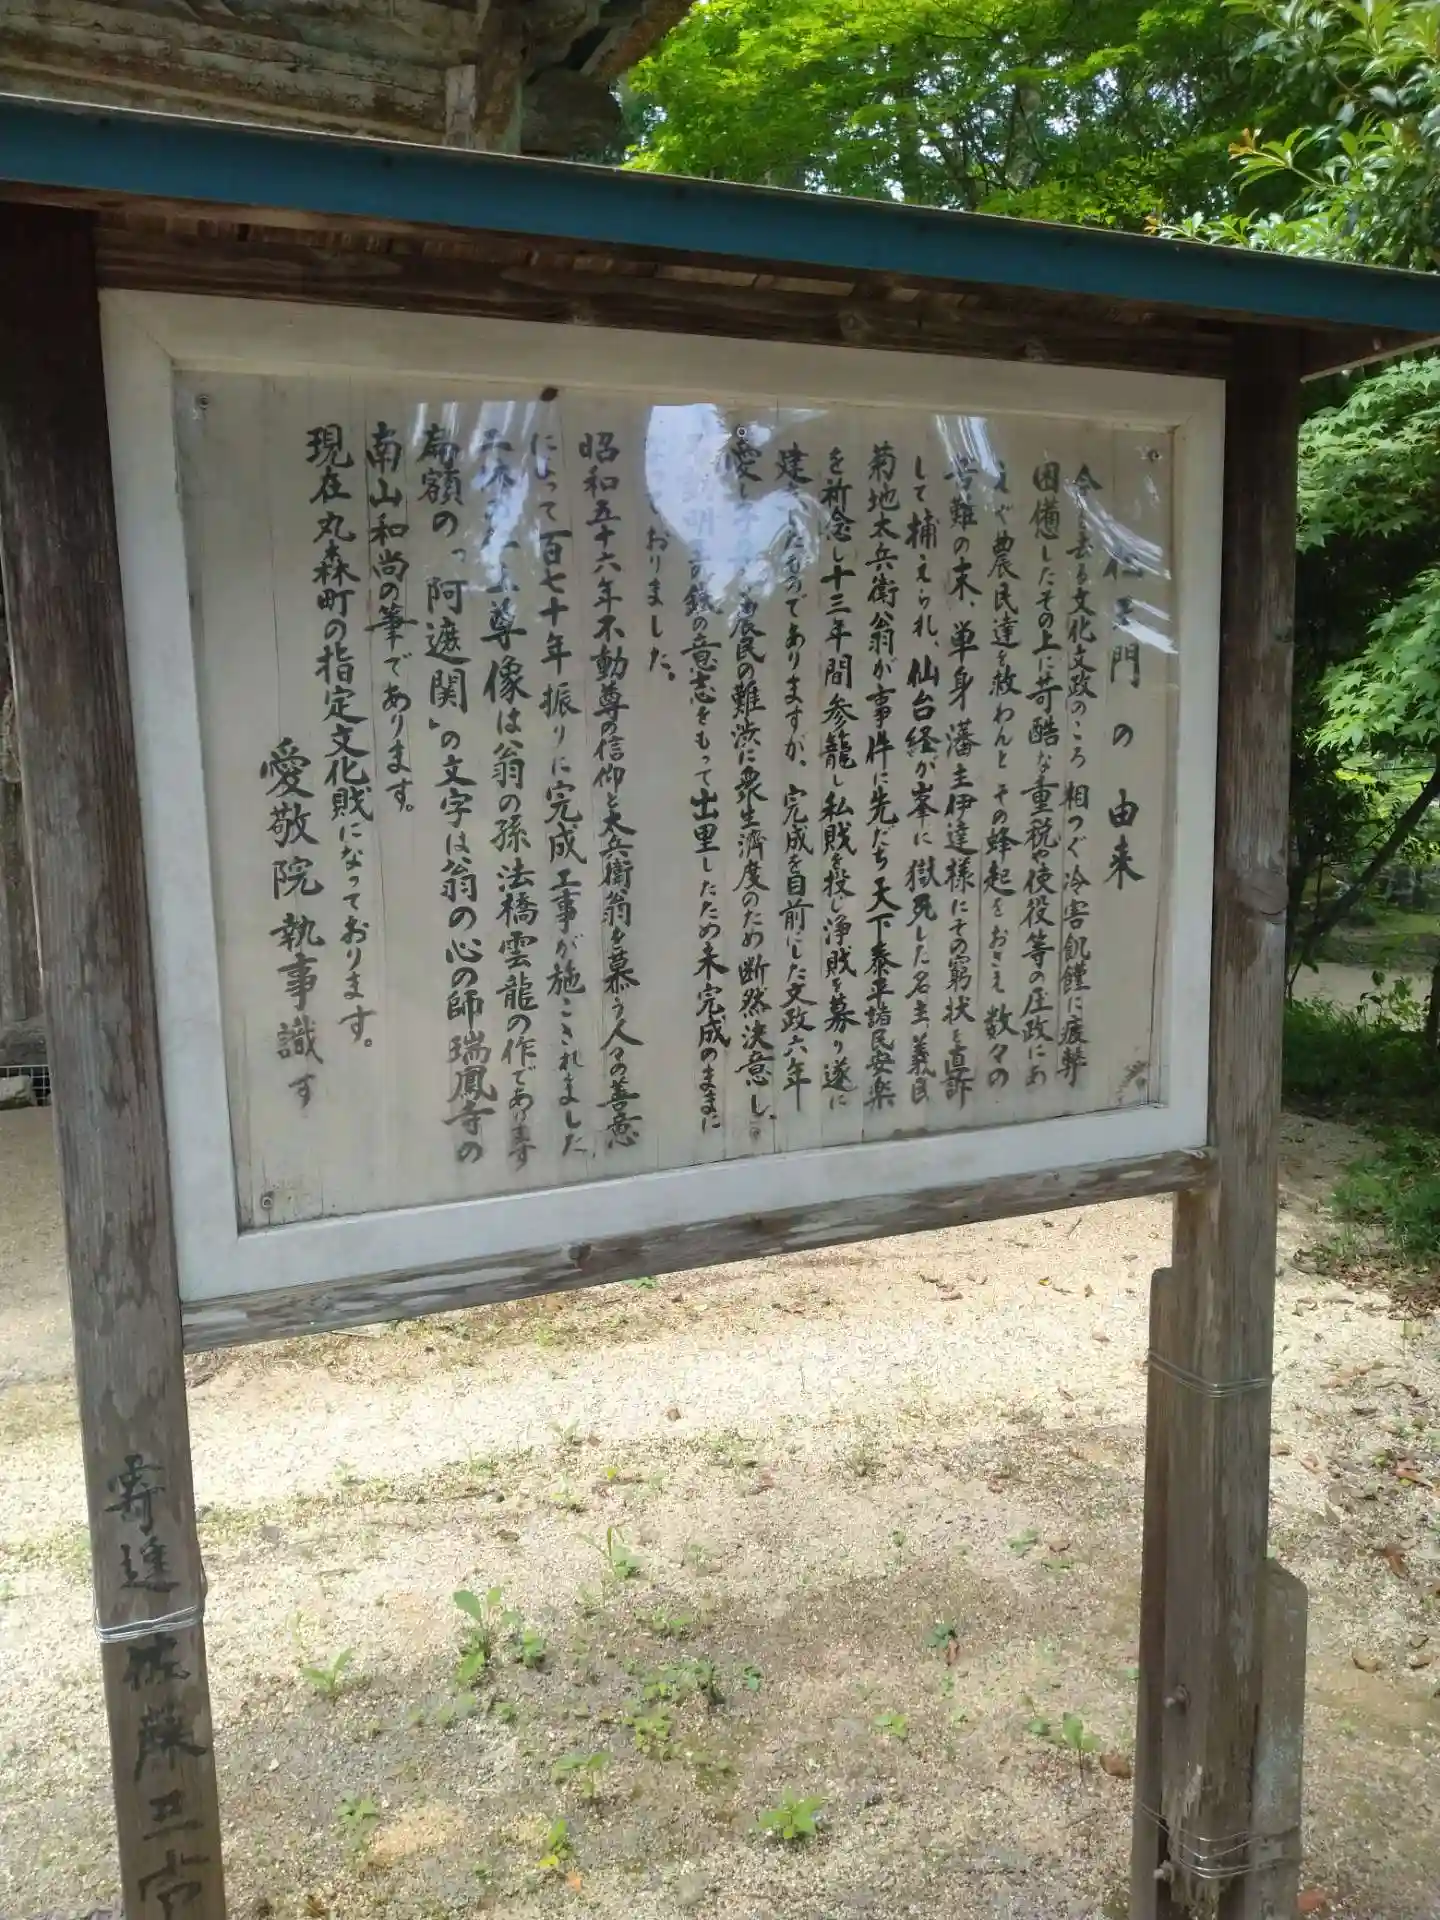 門の由来
今を去る文化文政のころ相つぐ冷害飢饉に疲弊
困憊したその上に苛酷な重税や使役等の圧政にあ
えぐ農民達を救わんとその蜂起をおさえ数々の
苦難の末、単身藩主伊達様にその窮状を直訴
して捕えられ、仙台経が峯に獄死した名主、義民
菊地太兵衛翁が事件に先だち天下泰平諸民安楽
を祈念し十三年間参籠し私財を投じ浄財を募り遂に
建立したものでありますが、完成を目前にした文政六年
農民の難渋に衆生済度のため断然決意し、
明王の銭の意志をもって出里したため未完成のままに
ておりました。
昭和五十六年不動尊の信仰と太兵衛翁を慕う人々の善意
によって百七十年振りに完成工事が施こされました
尊像は翁の孫法橋雲龍の作であります
扁額の「阿遮関」の文字は翁の心の師瑞鳳寺の
南山和尚の筆であります。
現在丸森町の指定文化財になっております。
愛敬院執事識す
寄進佐藤